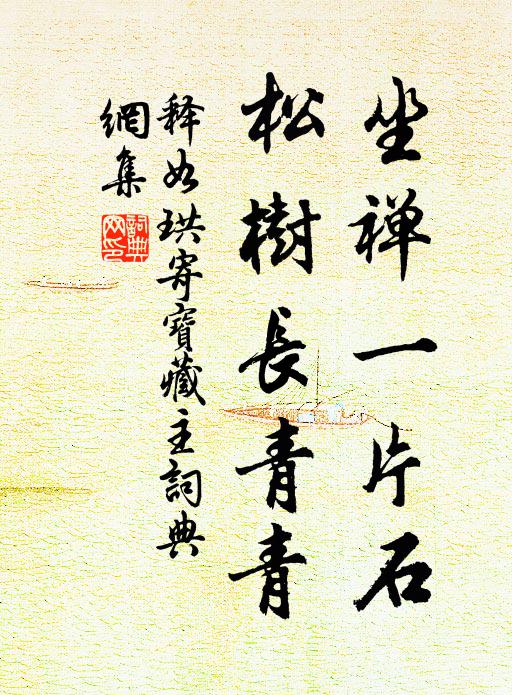 坐禅一片石
松樹長青青
释如珙寄寶藏主詞典
網集
詞典
網印